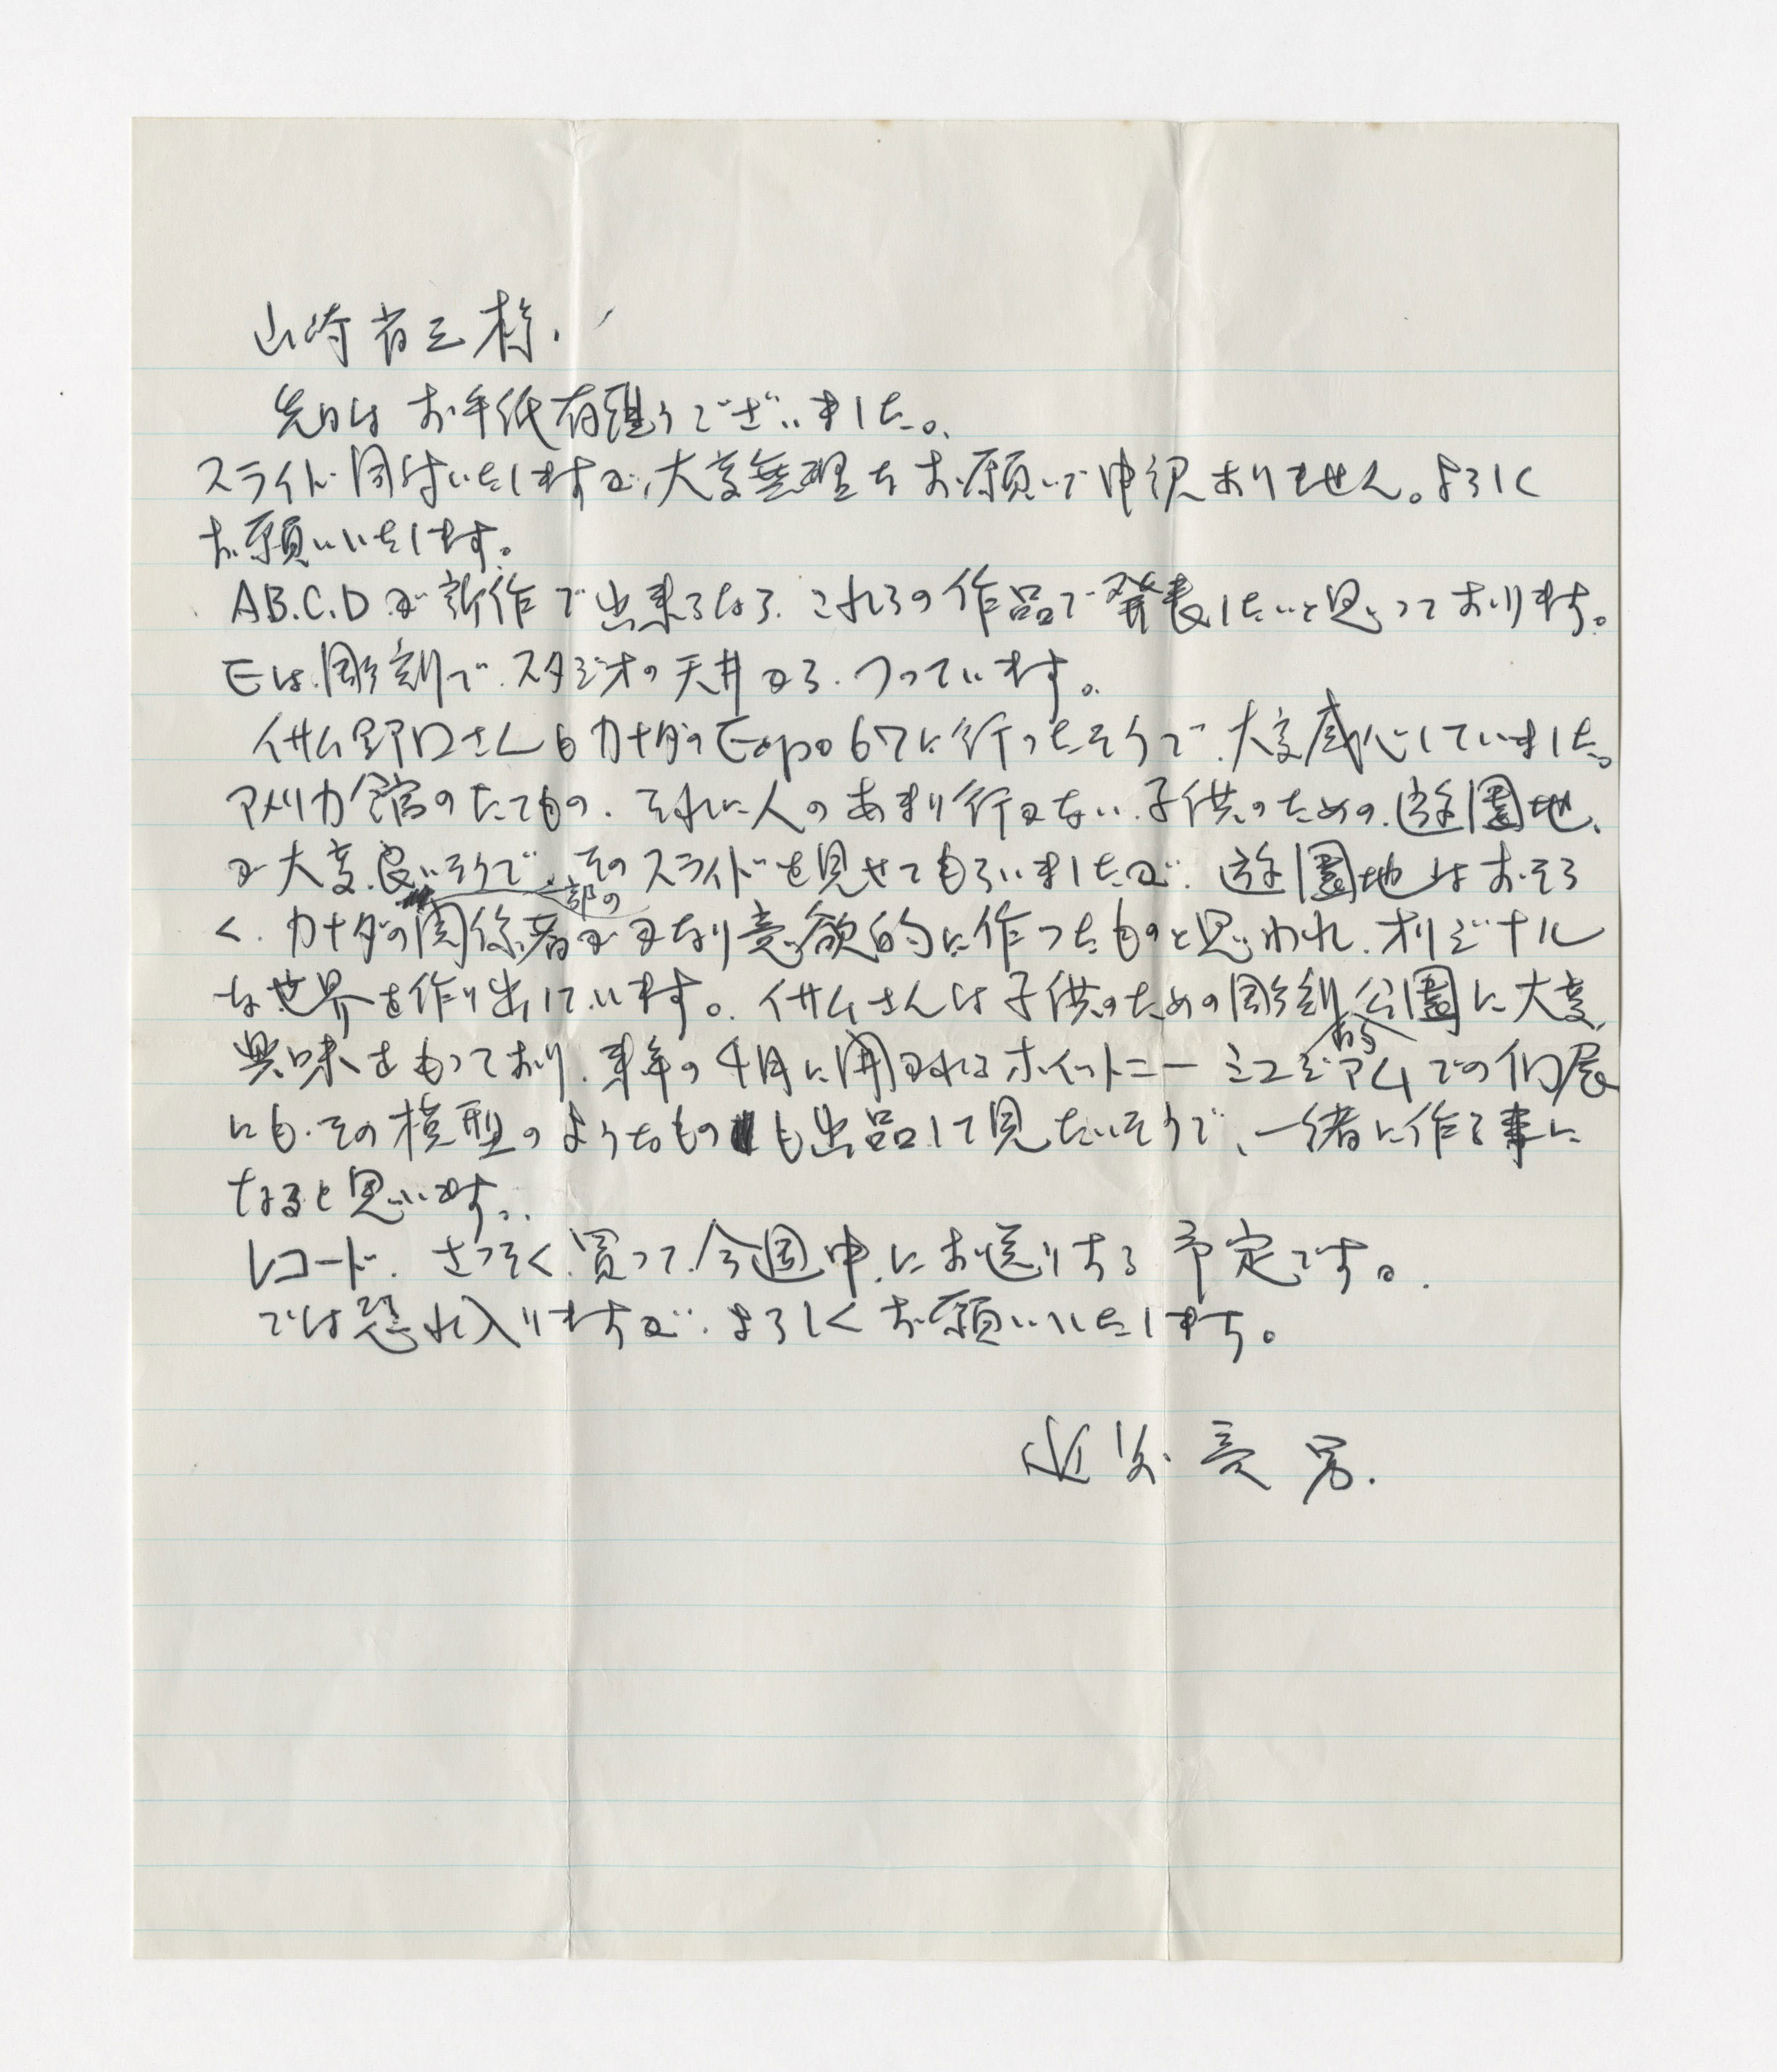 山崎省三様.
先日は お手紙有難うございました。
スライド同封いたしますが、大変無理なお願いで申訳ありません。よろしく
お願いいたします。
A.B.C.D が新作で出来るなら、これらの作品で発表したいと思っております。
Eは彫刻で、スタジオの天井から、つっています。
イサム野口さんもカナダのExpo 67に行ったそうで、大変感心していました。
アメリカ館のたてもの、それに人のあまり行かない、子供のための、遊園地、
が大変良いそうで、そのスライドを見せてもらいましたが、遊園地はおそら
く、カナダの一部の関係者がかなり意欲的に作ったものと思われ、オリジナル
な世界を作り出しています。イサムさんは子供のための彫刻的公園に大変、
興味をもっており、来年の4月に開かれるホイットニーミュジアムでの個展
にも、その模型のようなものも出品して見たいそうで、一緒に作る事に
なると思います。
レコード、さっそく買って、今週中にお送りする予定です。
では恐れ入りますが、よろしくお願いいたします。
近藤 竜男.